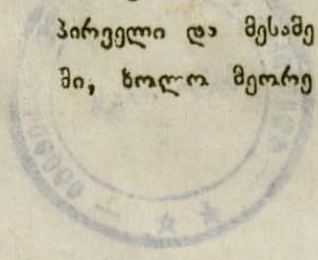 პირველი და მესამე
ში, ხოლო მეორე